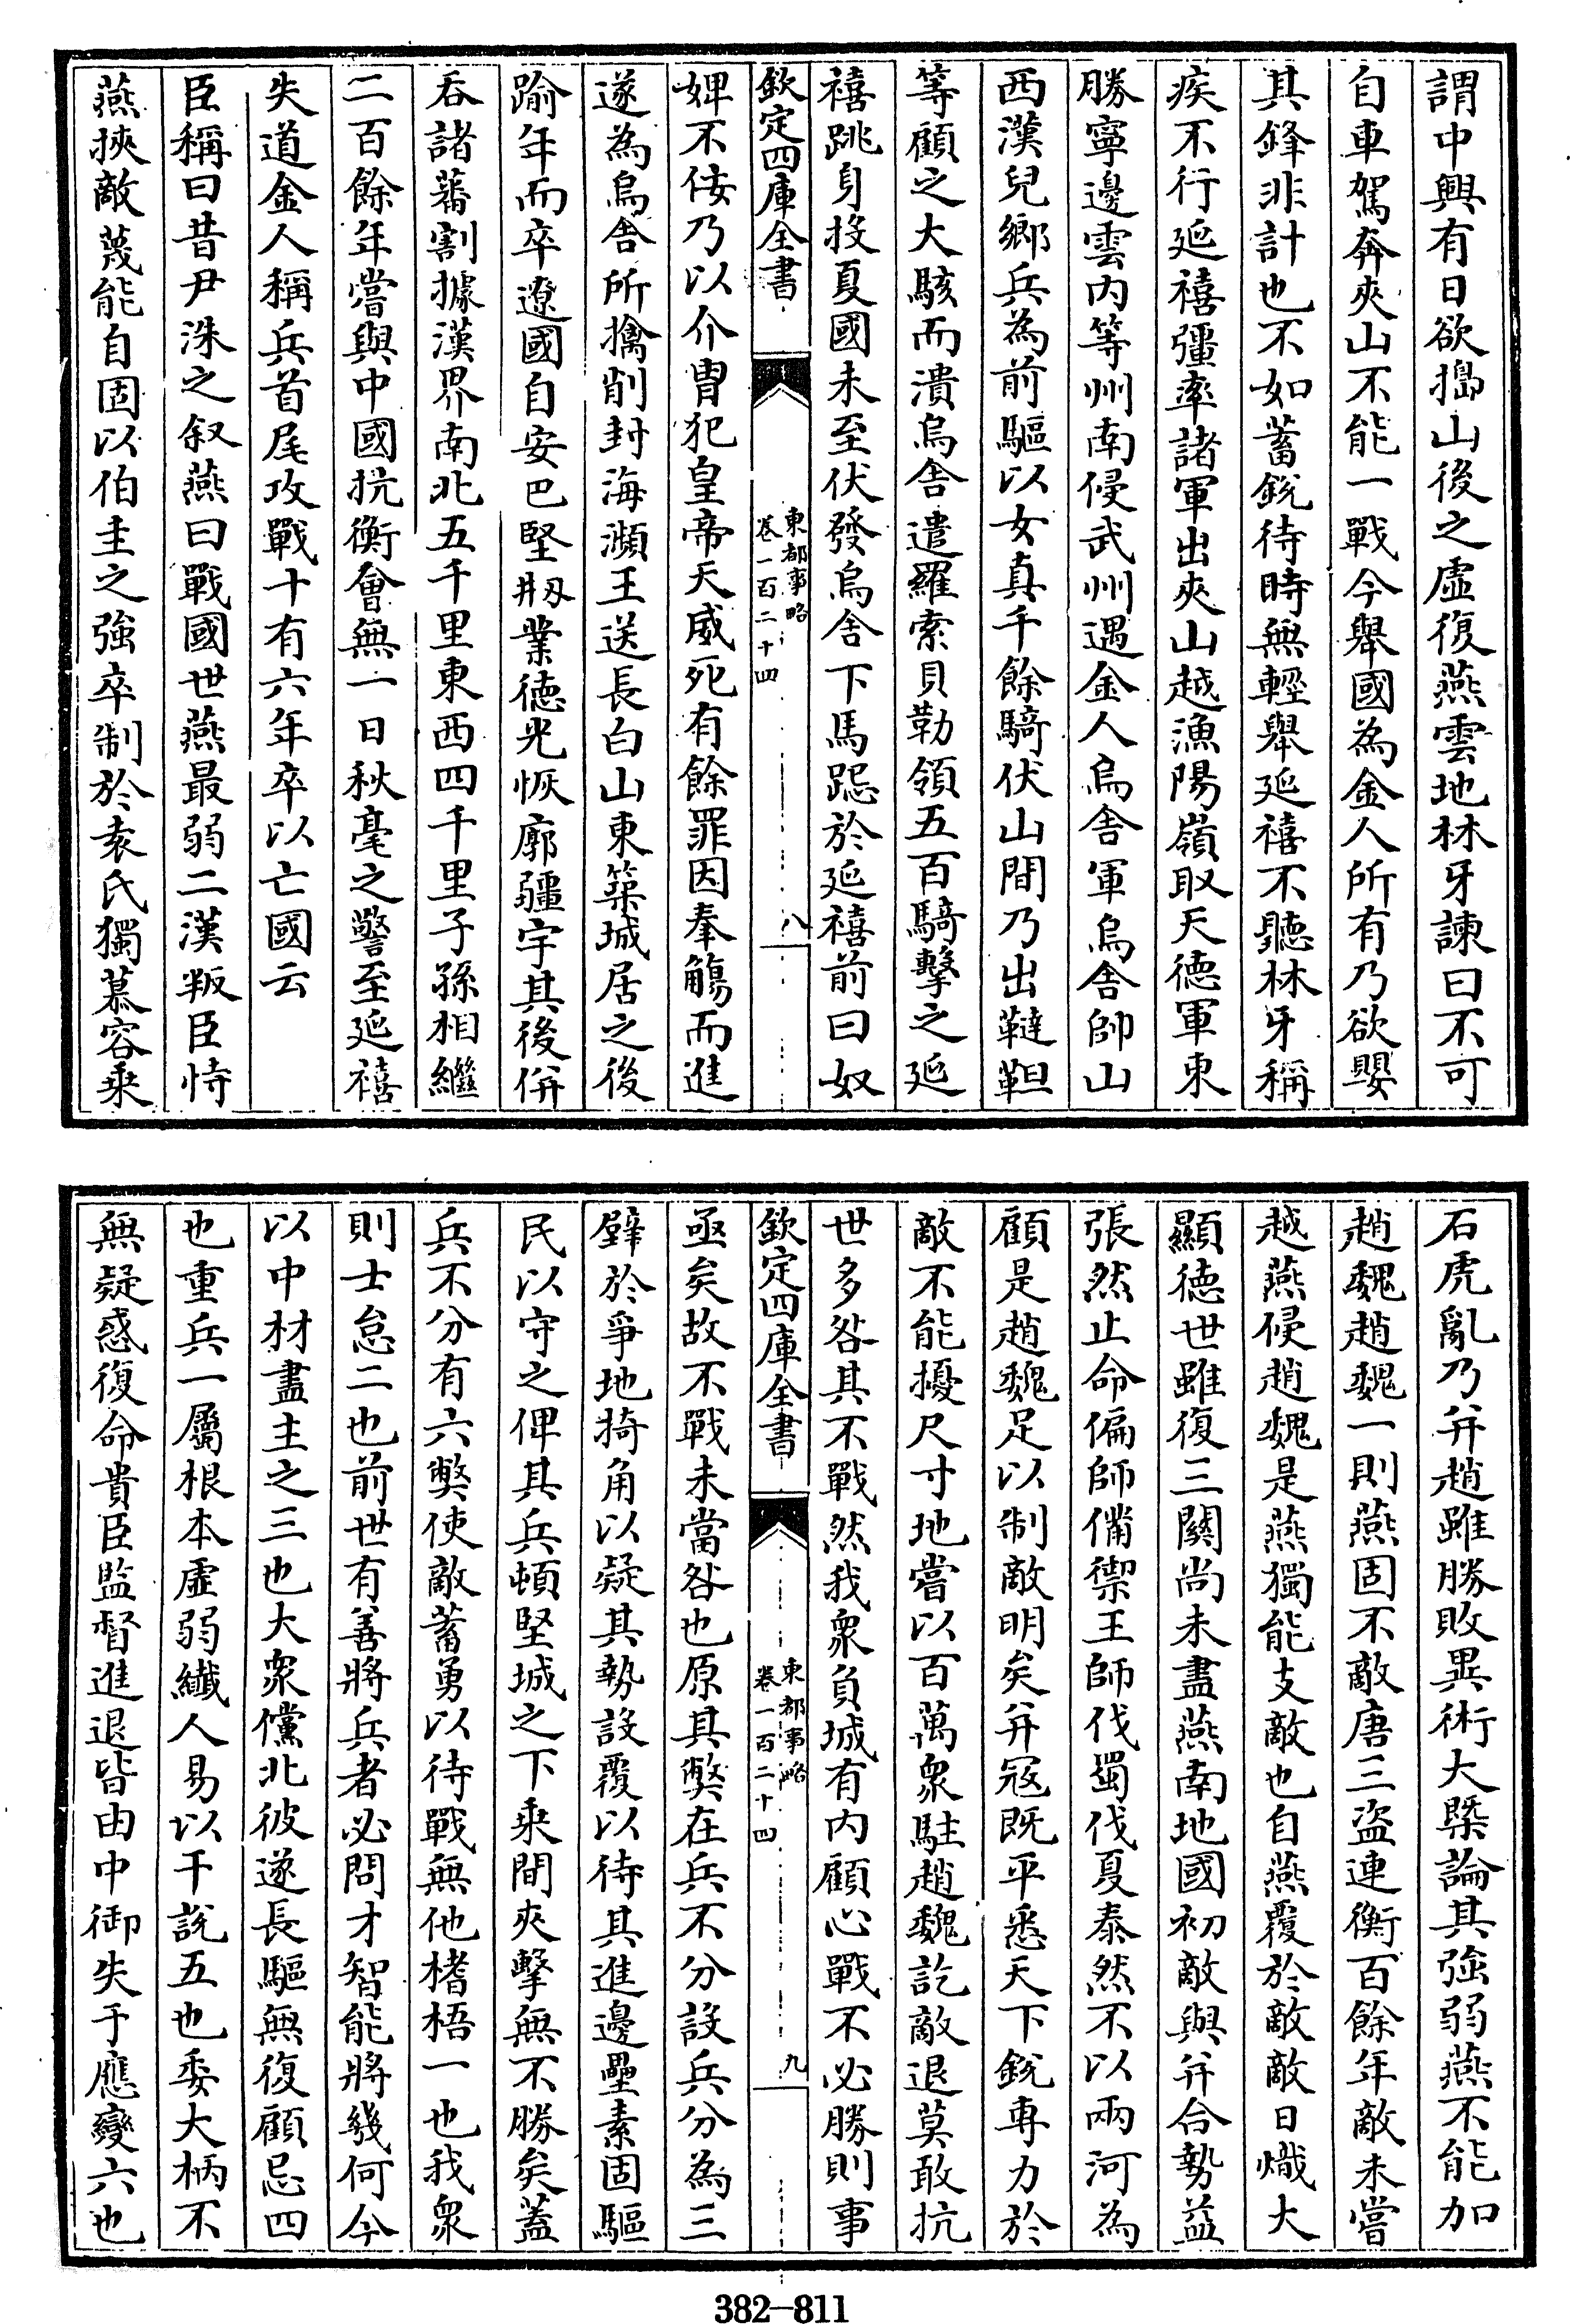 謂中興有日欲搗山後之虛復燕雲地林牙諫曰不可
自車駕奔夾山不能一戰今舉國為金人所有乃欲嬰
其鋒非計也不如蓄銳待時無輕舉延禧不聽林牙稱
疾不行延禧彊率諸軍出夾山越漁陽嶺取天德軍東
勝寧邊雲内等州南侵武州遇金人烏舍軍烏舍帥山
西漢兒鄉兵為前驅以女真千餘騎伏山間乃出韃靼
等顧之大駭而潰烏舍遣羅索貝勒領五百騎擊之延
禧跳身投夏國未至伏發烏舍下馬跽於延禧前曰奴
欽定四庫全書
東都事略
卷一百二十四
八
婢不佞乃以介胄犯皇帝天威死有餘罪因奉觴而進
遂為烏舍所擒削封海濵王送長白山東築城居之後
踰年而卒遼國自安巴堅剏業德光恢廓疆宇其後併
吞諸蕃割據漢界南北五千里東西四千里子孫相繼
二百餘年嘗與中國抗衡會無一日秋毫之警至延禧
失道金人稱兵首尾攻戰十有六年卒以亡國云
臣稱曰昔尹洙之叙燕曰戰國世燕最弱二漢叛臣恃
燕挾敵蔑能自固以伯圭之強卒制於袁氏獨慕容乘
石虎亂乃并趙雖勝敗異術大槩論其強弱燕不能加
趙魏趙魏一則燕固不敵唐三盜連衡百餘年敵未嘗
越燕侵趙魏是燕獨能支敵也自燕覆於敵敵日熾大
顯德世雖復三關尚未盡燕南地國初敵與并合勢益
張然止命偏師備禦王師伐蜀伐夏泰然不以兩河為
顧是趙魏足以制敵明矣并寇既平悉天下銳專力於
敵不能擾尺寸地嘗以百萬衆駐趙魏訖敵退莫敢抗
世多咎其不戰然我衆負城有内顧心戰不必勝則事
欽定四庫全書
東都事略
卷一百二十四
九
亟矣故不戰未當咎也原其弊在兵不分設兵分為三
壁於爭地掎角以疑其勢設覆以待其進邊壘素固驅
民以守之俾其兵頓堅城之下乘間夾擊無不勝矣蓋
兵不分有六弊使敵蓄勇以待戰無他楮梧一也我衆
則士怠二也前世有善將兵者必問才智能將幾何今
以中材盡主之三也大衆儻北彼遂長驅無復顧忌四
也重兵一屬根本虛弱纎人易以干說五也委大柄不
無疑惑復命貴臣監督進退皆由中御失于應變六也
382-811